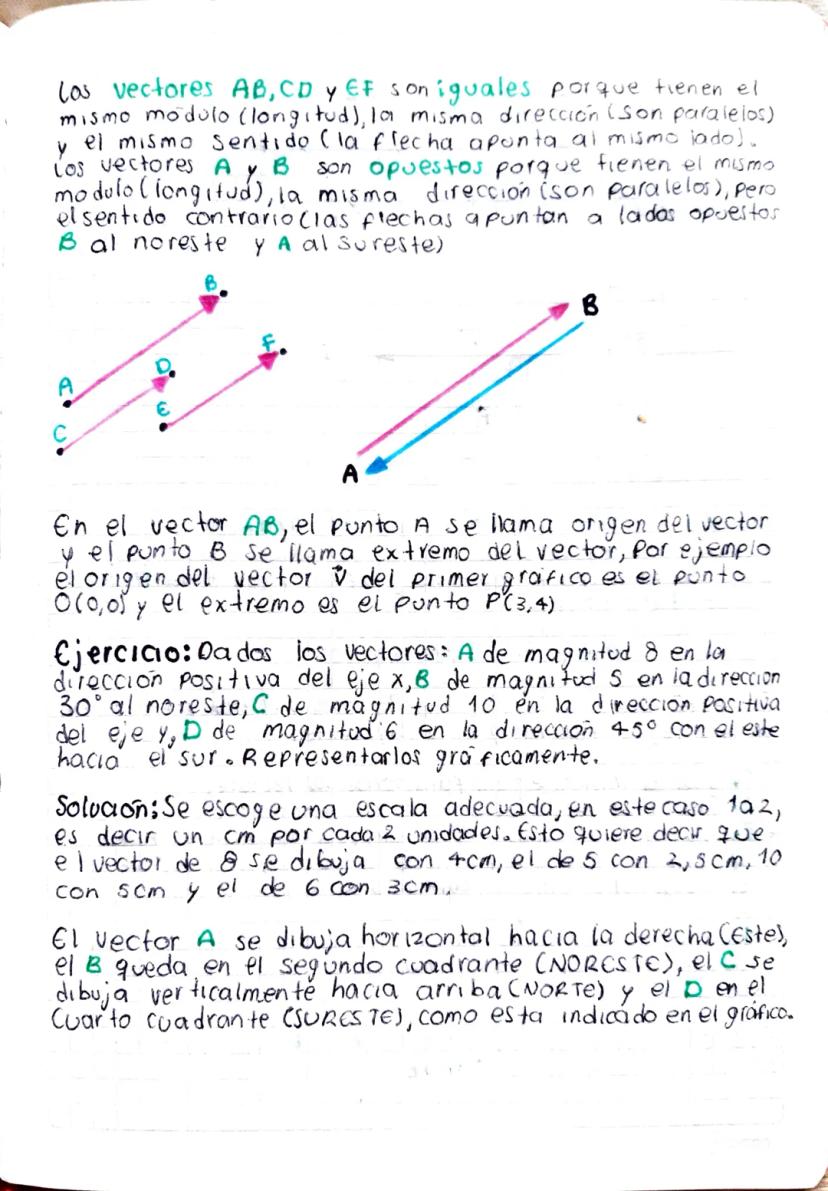 Los vectores AB, CD y EF son iguales porque tienen el
mismo modulo (longitud), la misma dirección (son paralelos)
y el mismo sentido (la flecha apunta al mismo lado).
Los vectores A y B son opuestos porque tienen el mismo
modulo (longitud), la misma dirección (son paralelos), pero
el sentido contrario (las flechas apuntan a lados opuestos
B al noreste y A al sureste)
B
A
D
C
F
E
B
A
En el vector AB, el punto A se llama origen del vector
y el punto B se llama extremo del vector, Por ejemplo
el origen del vector v del primer gráfico es el punto
O(0,0) y el extremo es el punto P(3,4)
Ejercicio: Dados los vectores: A de magnitud 8 en la
dirección positiva del eje x, B de magnitud 5 en la dirección
30° al noreste, C de magnitud 10 en la dirección positiva
del eje y, D de magnitud 6 en la dirección 45° con el este
hacia el sur. Representarlos gráficamente.
Solución: Se escoge una escala adecuada, en este caso 1 a 2,
es decir un cm por cada 2 unidades. Esto quiere decir que
el vector de 8 se dibuja con 4cm, el de 5 con 2,5cm, 10
con 5cm y el de 6 con 3cm.
El vector A se dibuja horizontal hacia la derecha (Este),
el B queda en el segundo cuadrante (NORESTE), el C se
dibuja verticalmente hacia arriba (NORTE) y el D en el
Cuarto cuadrante (SURESTE), como esta indicado en el gráfico.